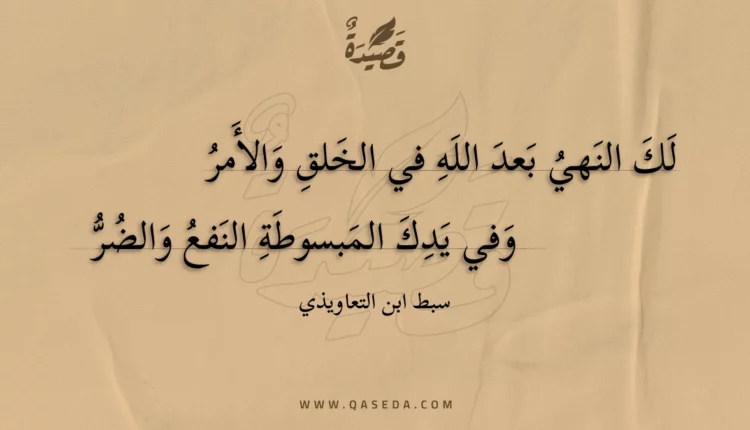 قَصِيْدَةٌ
لَكَ النَهيُ بَعدَ اللَهِ في الخَلقِ وَالأَمرُ
وَفي يَدِكَ المَبسوطَةِ النَفعُ وَالضُرُّ
سبط ابن التعاويذي
WWW.QASEDA.COM